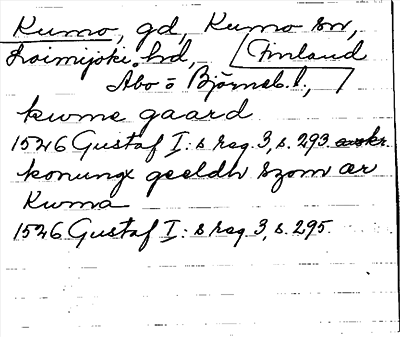 Kumo, gd, Kumo sn,
Loimijoki hd, Finland
Åbo o Björneb. l.,
kwme gaard
1526 Gustaf I: s reg. 3, s. 293 avskr.
konungx geeldh szom ær
Kuma
1526 Gustaf I: s reg 3, s. 295.